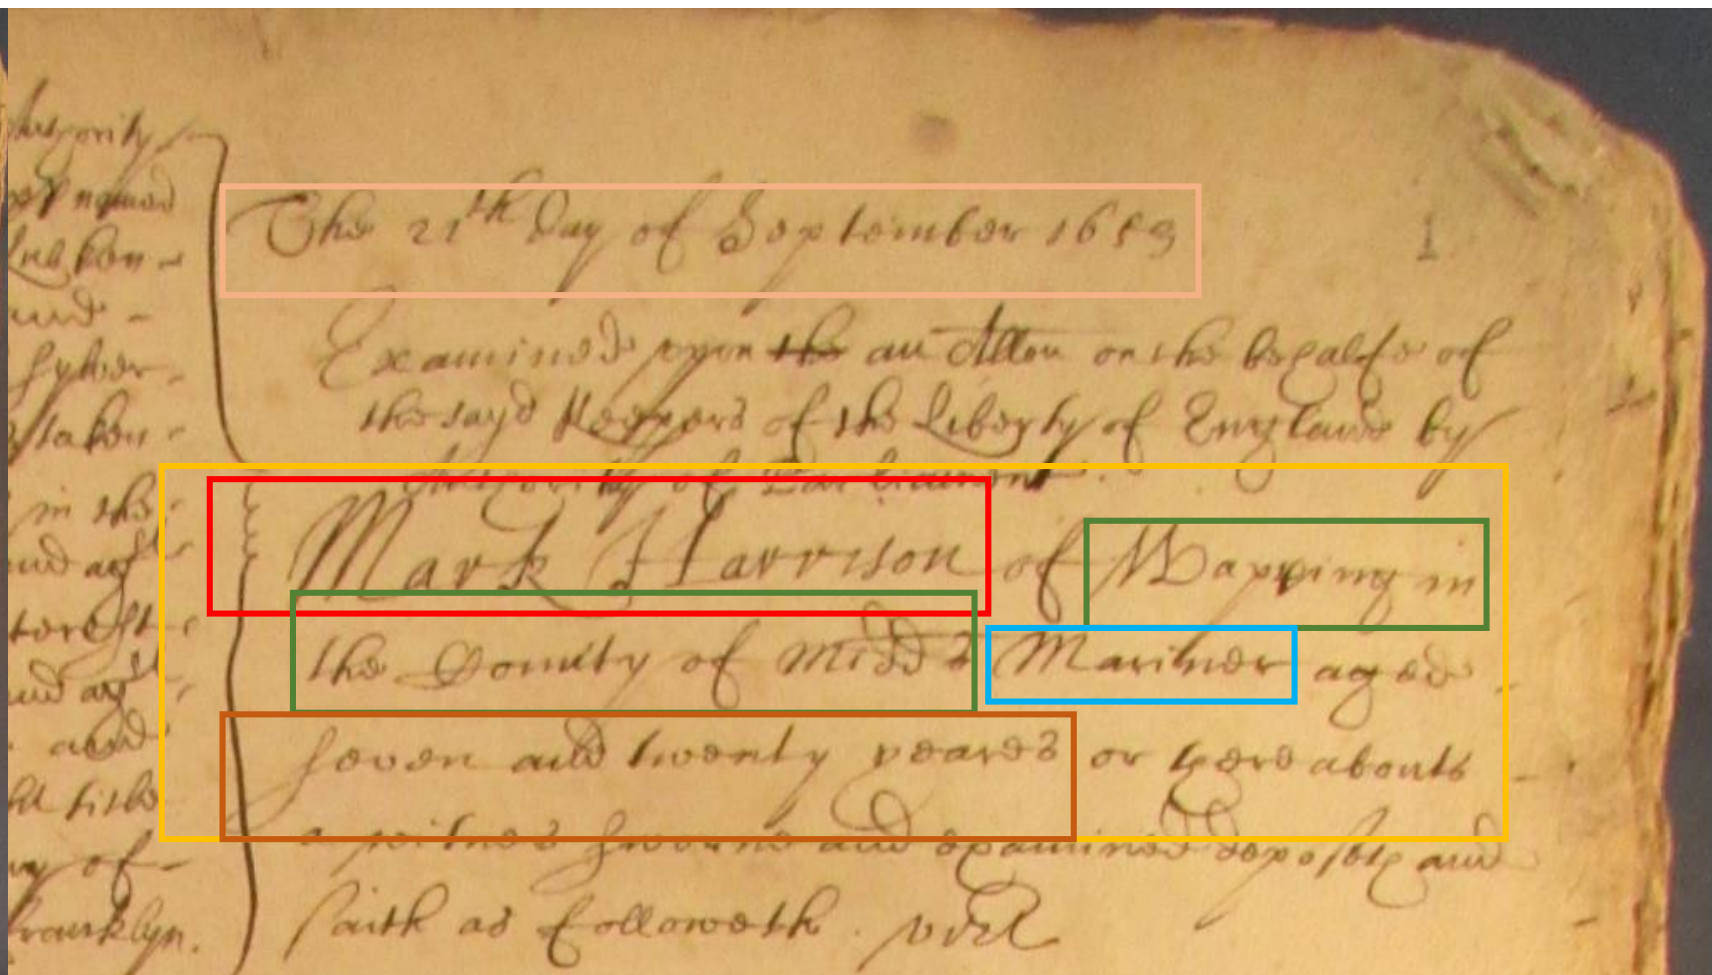 thority
named
Lubken -
and -
sylver -
taken -
in the
and agst
Interest
and agst
and
title
of -
ffrancklyn.
The 21th day of September 1653
1
Examined upon the an Allon on the behalfe of
the sayd Keepers of the Liberty of England by
Authority of Parliament.
Mark Harrison of Wapping in
the County of Midds Mariner aged
seven and twenty yeares or thereabouts
a witnes sworne and examined deposeth and
saith as followeth. vizt